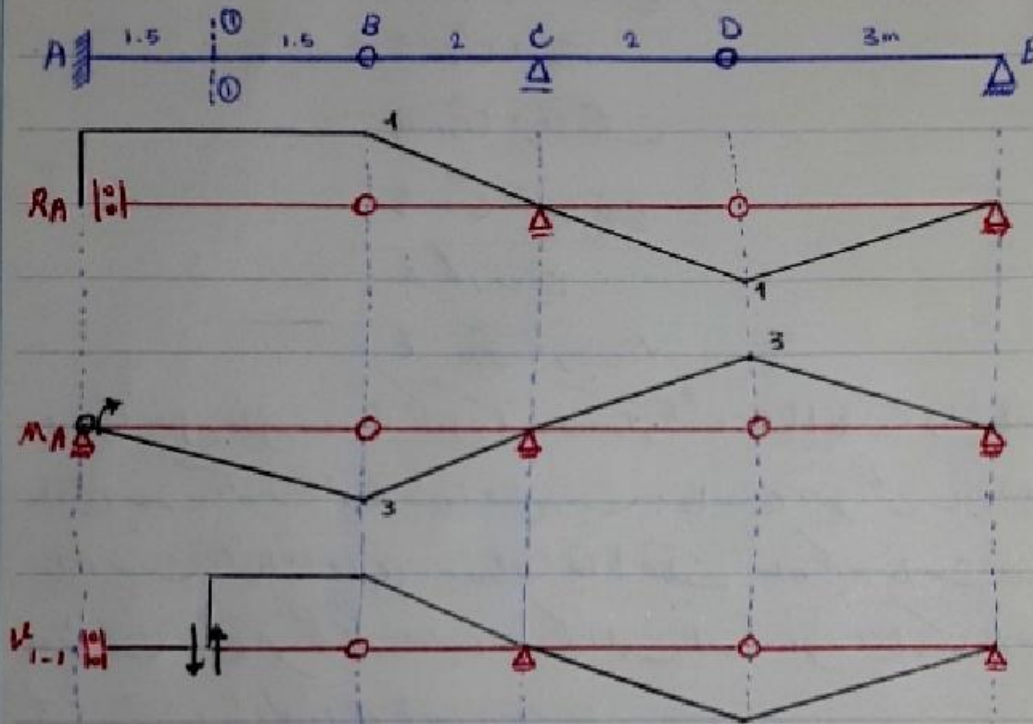 ①
A 1.5 1.5 B 2 C 2 D 3m E
①
1
RA
1
3
MA
3
V1-1